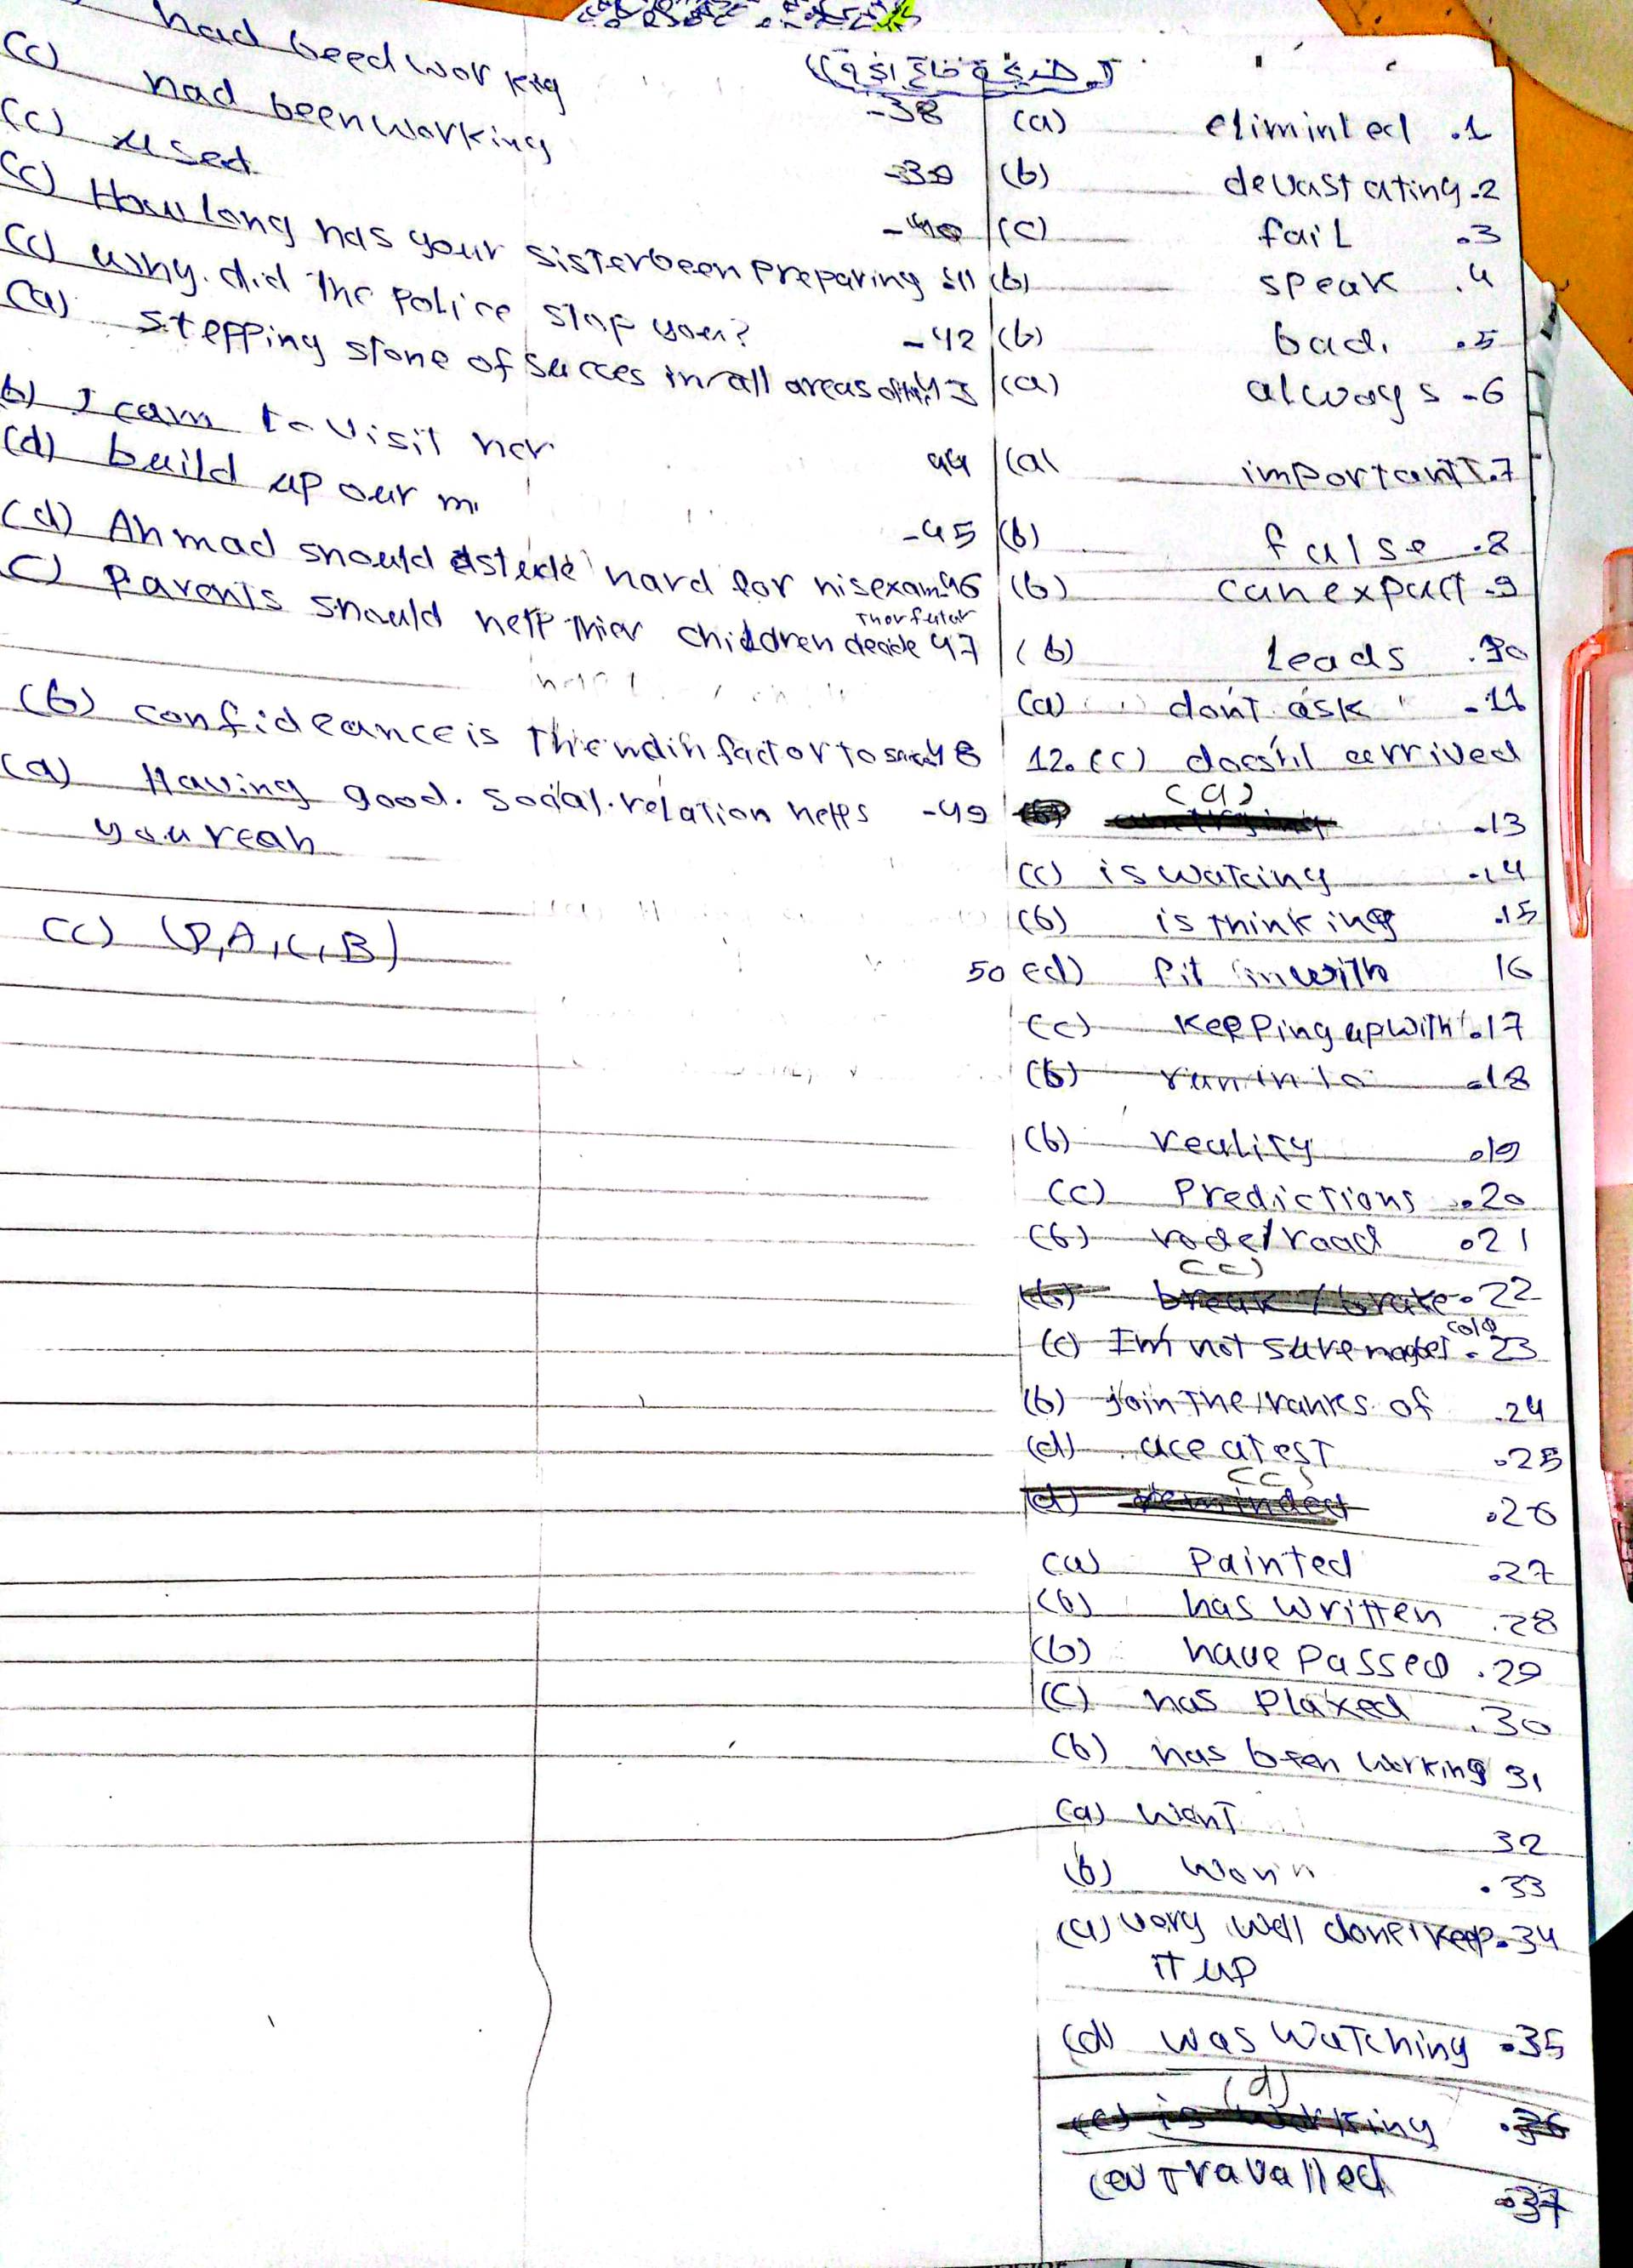 (a) eliminted .1
(b) devastating .2
(c) fail .3
(b) speak .4
(b) bad. .5
(a) always -6
(a) important .7
(b) false .8
(b) can expact .9
(b) Leads
(a) don't ask - 11
12. (c) arrived
(a) -13
(c) is watcing -14
(b) is thinking .15
(d) fit in with 16
(c) Keepping up with .17
(b) run into -18
(b) reality .19
(c) Predictions .20
(b) rode/road .21
(c)
(b) break / brake .22
(c) I'm not sure .23
(b) join the ranks of .24
(d) ace a test .25
(c) .26
(a) Painted .27
(b) has written .28
(b) have passed .29
(c) has played .30
(b) has been working 31
(a) want 32
(b) .33
(a) very well done! keep .34
it up
(d) was watching .35
(d)
(c) is working .36
travalled .37
had beed working
(c) had been working -38
(c) used -39
(c) How long has your sister been preparing
(c) why did the police stop you? -42
(a) stepping stone of succes in all areas
(b) I cam to visit her 44
(d) build up our -45
(d) Ahmad should hard for his exam 46
(c) Parents should help thier children decide 47
(b) confideance is The factor to 48
(a) Having good. social relation helps -49
you reah
(c) (D,A,C,B) 50